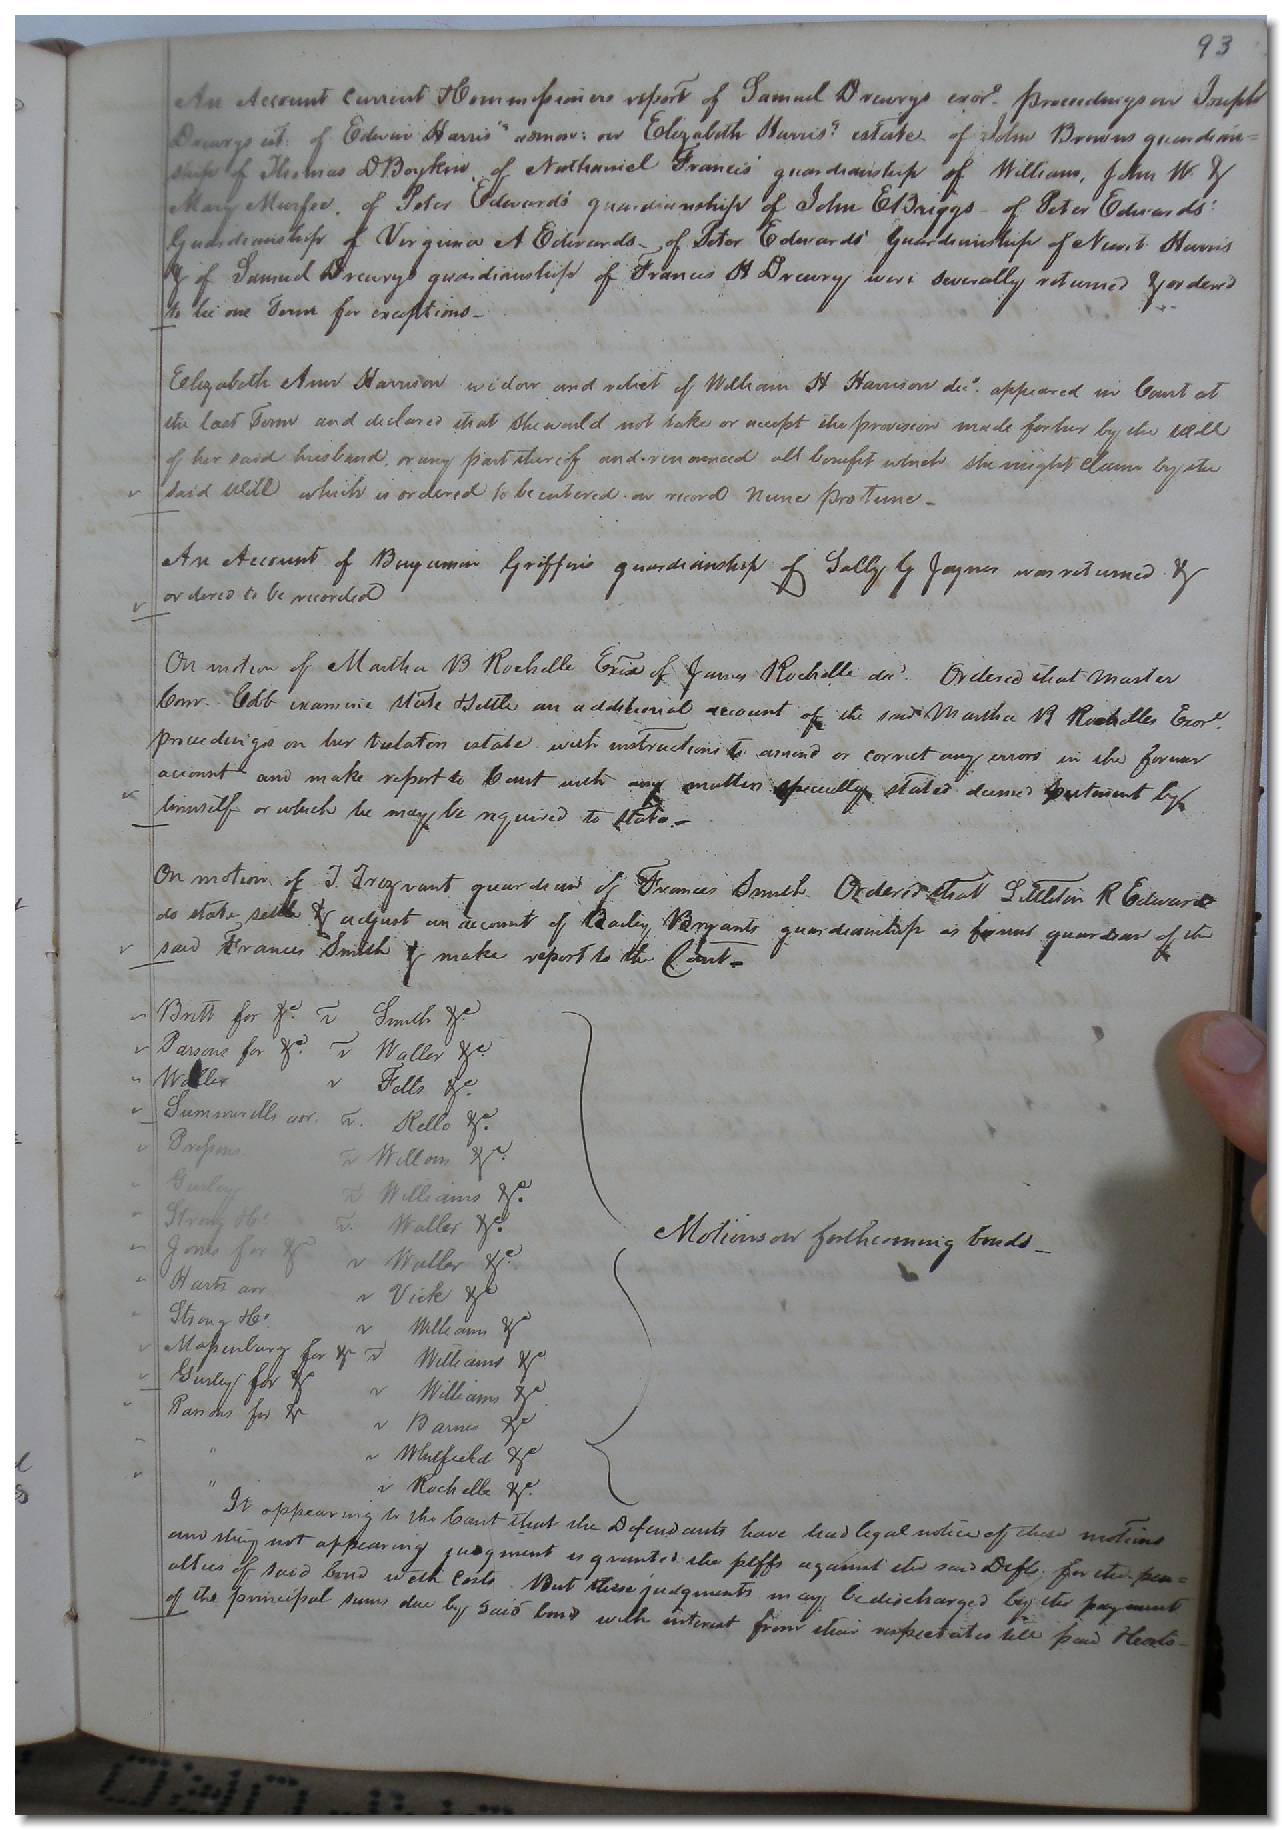 93
An Account Current & Commissioners report of Samuel Drewrys exor. proceedings on Joseph
Drewrys est. of Edwin Harris's admon: on Elizabeth Harris's estate of John Browns guardian=
ship of Thomas D Boykin, of Nathaniel Francis' guardianship of William, John W. &
Mary Murfee, of Peter Edwards' guardianship of John E Briggs - of Peter Edwards'
Guardianship of Virginia A Edwards - of Peter Edwards' Guardianship of Newit Harris
& of Samuel Drewrys guardianship of Francis H Drewry were severally returned & ordered
to lie one Term for exceptions -
Elizabeth Ann Harrison widow and relict of William H Harrison decd. appeared in Court at
the last Term and declared that she would not take or accept the provision made for her by the will
of her said husband, or any part thereof and renounced all benefit which she might claim by the
said Will which is ordered to be entered on record Nunc pro tunc -
An Account of Benjamin Griffin's guardianship of Sally G Joyner was returned &
ordered to be recorded
On motion of Martha B Rochelle Exrx of James Rochelle decd. Ordered that Master
Comr. Cobb examine state & settle an additional account of the said Martha B Rochelles Exorl.
proceedings on her testators estate with instructions to amend or correct any errors in the former
account and make report to Court with any matters specially stated deemed pertinent by
himself or which he may be required to state -
On motion of T. Trezvant guardian of Frances Smith Ordered that Littleton R Edwards
do state, settle & adjust an account of Bailey Bryants guardianship as former guardian of the
said Frances Smith & make report to the Court -
Britt for &c. v Smith &c
Parsons for &c. v Waller &c.
Waller v Felts &c.
Summerells v. Rello &c.
v &c.
Gurley v Williams &c.
Strong & Co v. Waller &c.
Jones for &c v Waller &c.
Harts v Vick &c
Strong & Co. v Williams &c
Massenburg for &c v Williams &c
Gurley for &c v Williams &c
Parsons for &c v Barnes &c
" v Whitfield &c
" v Rochelle &c.
Motions on forthcoming bonds -
It appearing to the Court that the Defendants have had legal notice of these motions
and they not appearing judgment is granted the plffs against the said Defts. for the pen=
alties of said bond with Costs. But these judgments may be discharged by the payment
of the principal sums due by said bond with interest from their respective dates till paid & costs -